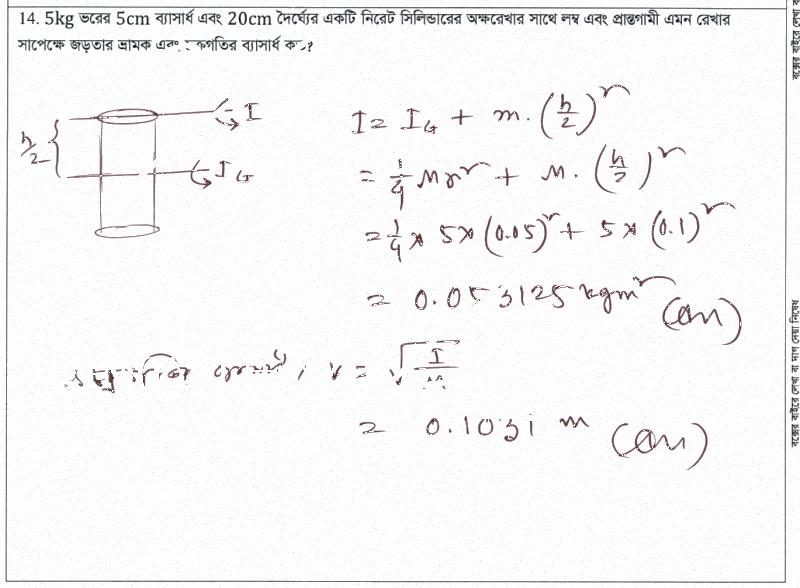 14. 5kg ভরের 5cm ব্যাসার্ধ এবং 20cm দৈর্ঘ্যের একটি নিরেট সিলিন্ডারের অক্ষরেখার সাথে লম্ব এবং প্রান্তগামী এমন রেখার
সাপেক্ষে জড়তার ভ্রামক এবং ব্যাসার্ধ কত?
h/2
I
I_G
I = I_G + m.(h/2)^২
= 1/4 Mr^২ + M.(h/2)^২
= 1/4 × 5 × (0.05)^২ + 5 × (0.1)^২
= 0.053125 kgm^২ (An)
, r = √(I/M)
= 0.1031 m (An)
বক্সের বাইরে লেখা বা দাগ দেয়া নিষেধ